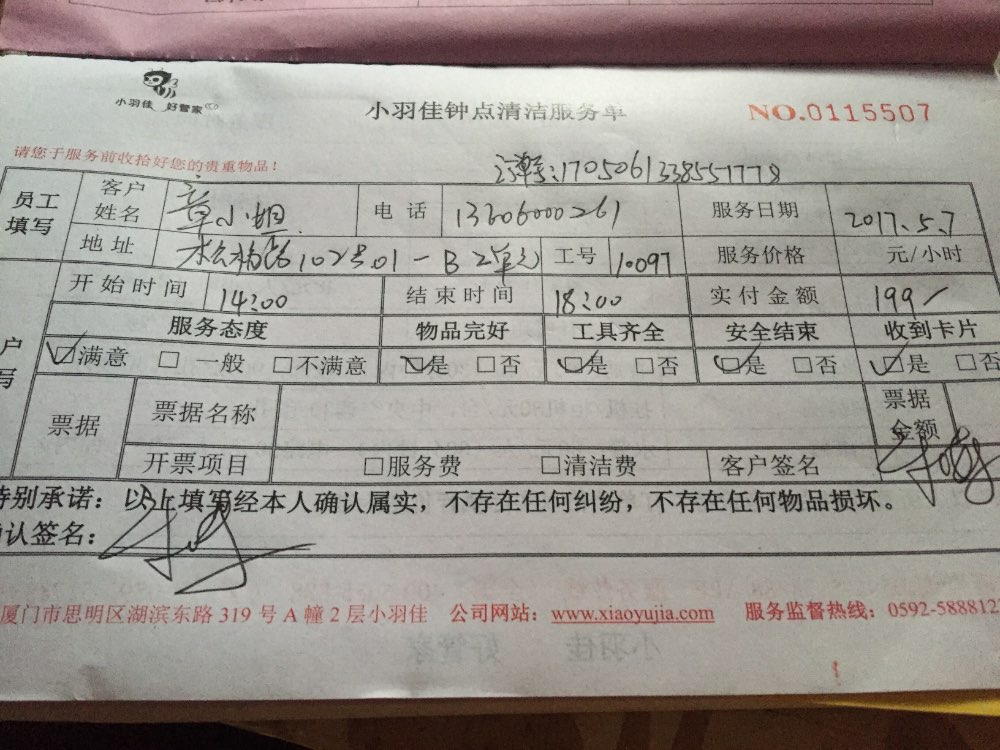 小羽佳 好管家
小羽佳钟点清洁服务单
NO.0115507
请您于服务前收拾好您的贵重物品！
1705061338551778
员工填写 客户姓名 章小姐 电话 13606000261 服务日期 2017.5.7
地址 102号01-B 2单元 工号 10097 服务价格 元/小时
开始时间 14:00 结束时间 18:00 实付金额 199
服务态度 物品完好 工具齐全 安全结束 收到卡片
☑满意 □一般 □不满意 ☑是 □否 ☑是 □否 ☑是 □否 ☑是 □否
户
写
票据 票据名称 票据金额
开票项目 □服务费 □清洁费 客户签名
特别承诺：以上填写经本人确认属实，不存在任何纠纷，不存在任何物品损坏。
确认签名：
厦门市思明区湖滨东路 319 号 A 幢 2 层小羽佳 公司网站：www.xiaoyujia.com 服务监督热线：0592-588812